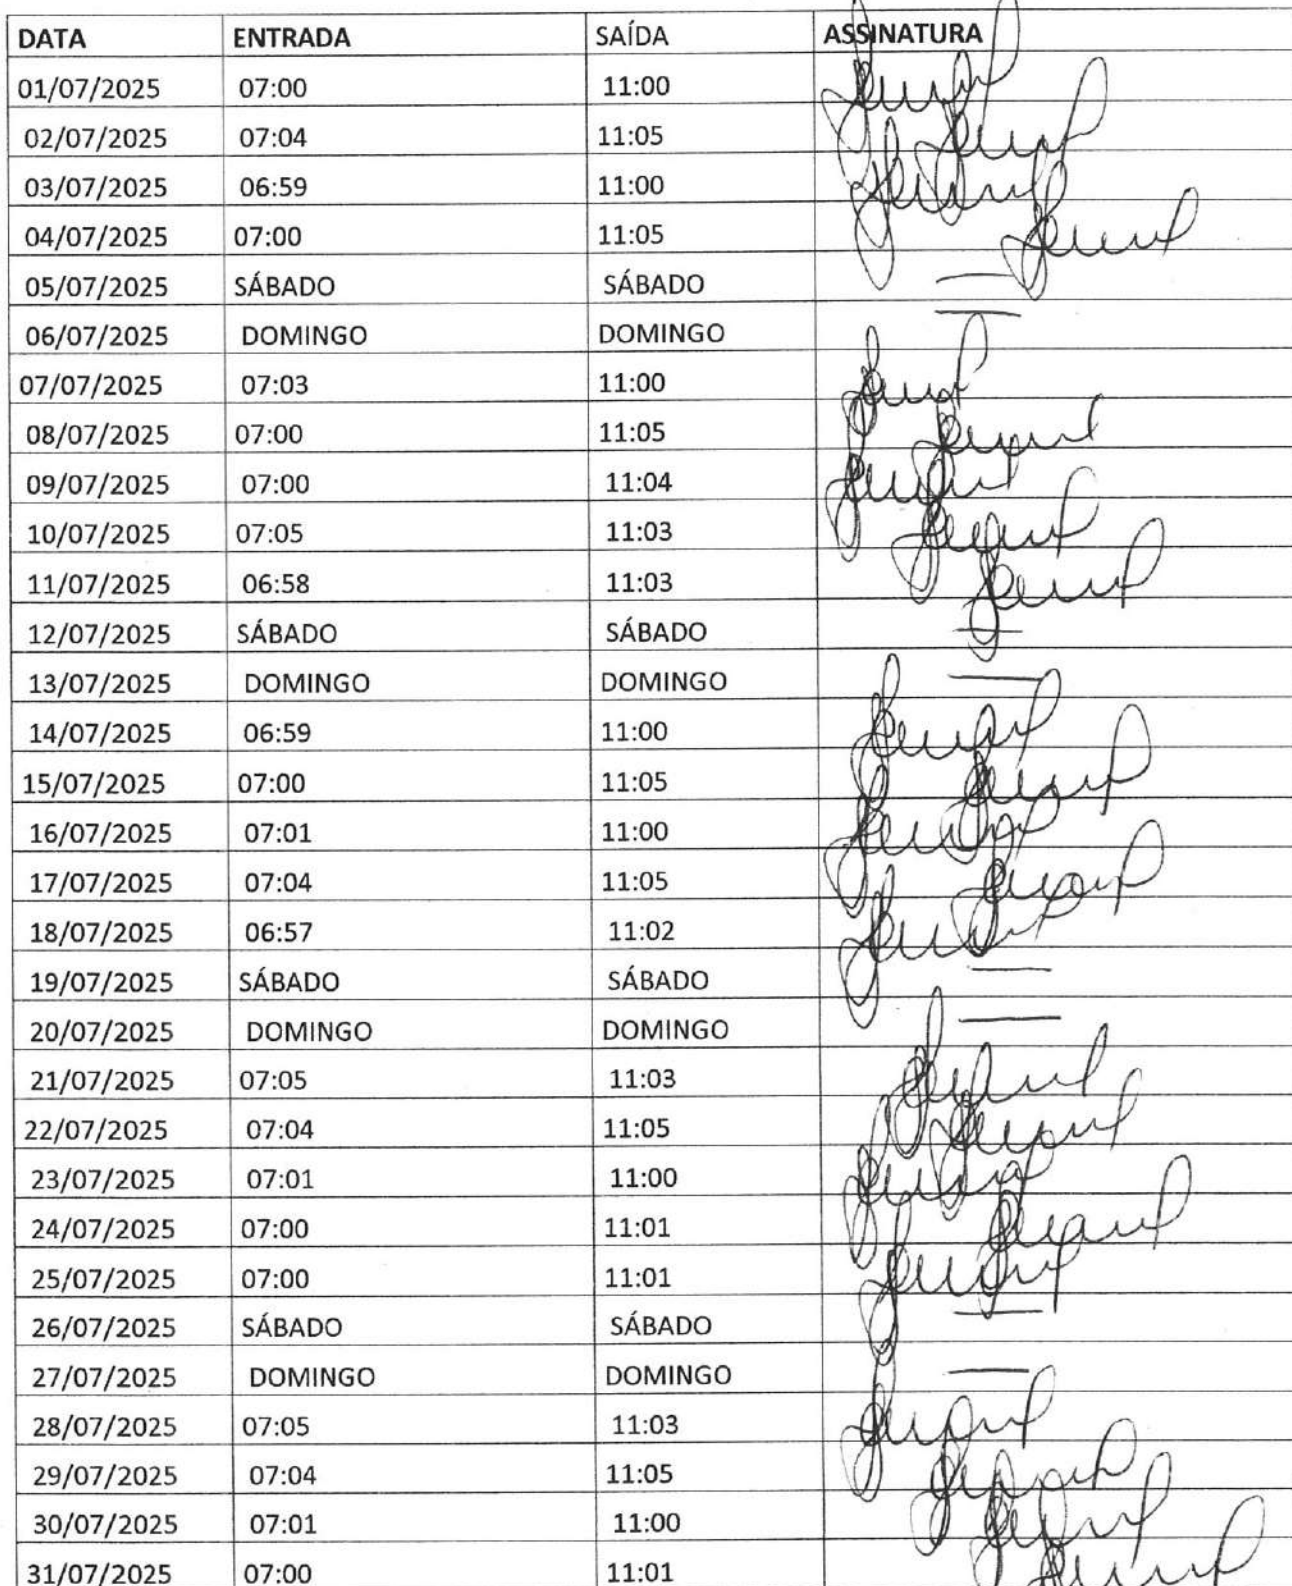 DATA ENTRADA SAÍDA ASSINATURA
01/07/2025 07:00 11:00
02/07/2025 07:04 11:05
03/07/2025 06:59 11:00
04/07/2025 07:00 11:05
05/07/2025 SÁBADO SÁBADO
06/07/2025 DOMINGO DOMINGO
07/07/2025 07:03 11:00
08/07/2025 07:00 11:05
09/07/2025 07:00 11:04
10/07/2025 07:05 11:03
11/07/2025 06:58 11:03
12/07/2025 SÁBADO SÁBADO
13/07/2025 DOMINGO DOMINGO
14/07/2025 06:59 11:00
15/07/2025 07:00 11:05
16/07/2025 07:01 11:00
17/07/2025 07:04 11:05
18/07/2025 06:57 11:02
19/07/2025 SÁBADO SÁBADO
20/07/2025 DOMINGO DOMINGO
21/07/2025 07:05 11:03
22/07/2025 07:04 11:05
23/07/2025 07:01 11:00
24/07/2025 07:00 11:01
25/07/2025 07:00 11:01
26/07/2025 SÁBADO SÁBADO
27/07/2025 DOMINGO DOMINGO
28/07/2025 07:05 11:03
29/07/2025 07:04 11:05
30/07/2025 07:01 11:00
31/07/2025 07:00 11:01